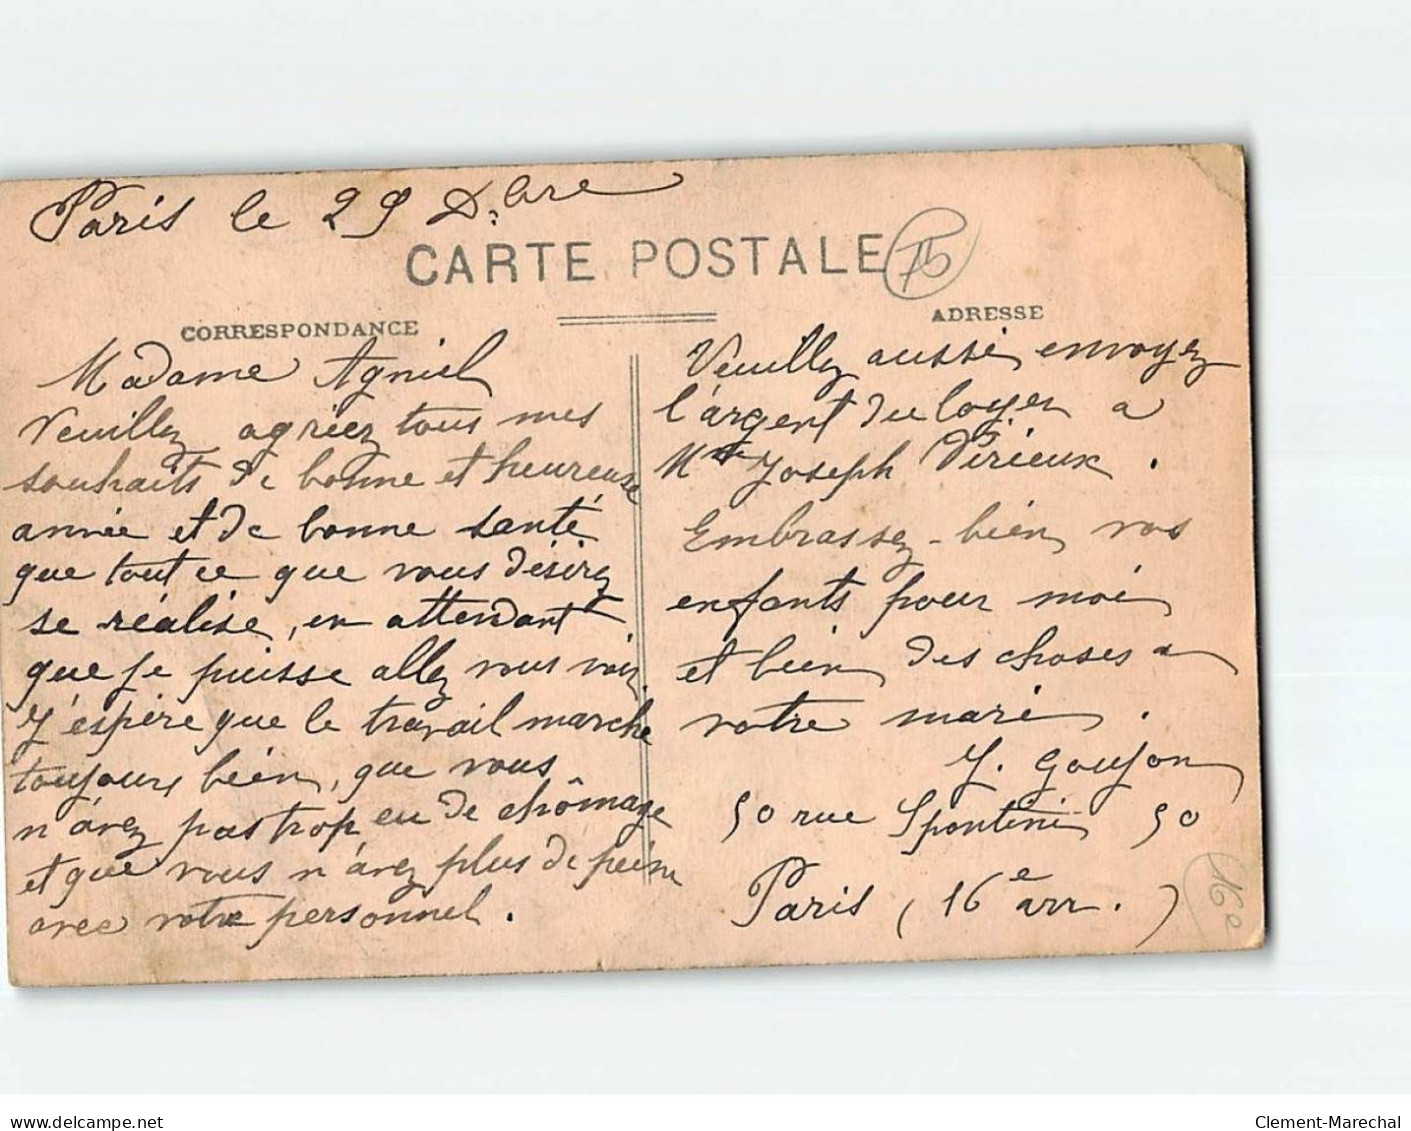 Paris le 29 D.bre
CARTE POSTALE
75
CORRESPONDANCE
ADRESSE
Madame Agniel
Veuillez agriez tous mes
souhaits de bonne et heureuse
année et de bonne santé
que tout ce que vous désirez
se réalise, en attendant
que je puisse allez vous voir,
J'espère que le travail marche
toujours bien, que vous
n'avez pas trop eu de chômage
et que vous n'avez plus de peine
avec votre personnel.
Veuillez aussi envoyez
l'argent du loyer a
Joseph Périeux.
Embrassez-bien vos
enfants pour moi
et bien des choses a
votre mari.
J. Goujon
50 rue Spontini 50
Paris (16e arr.)
16e
www.delcampe.net
Clement-Marechal